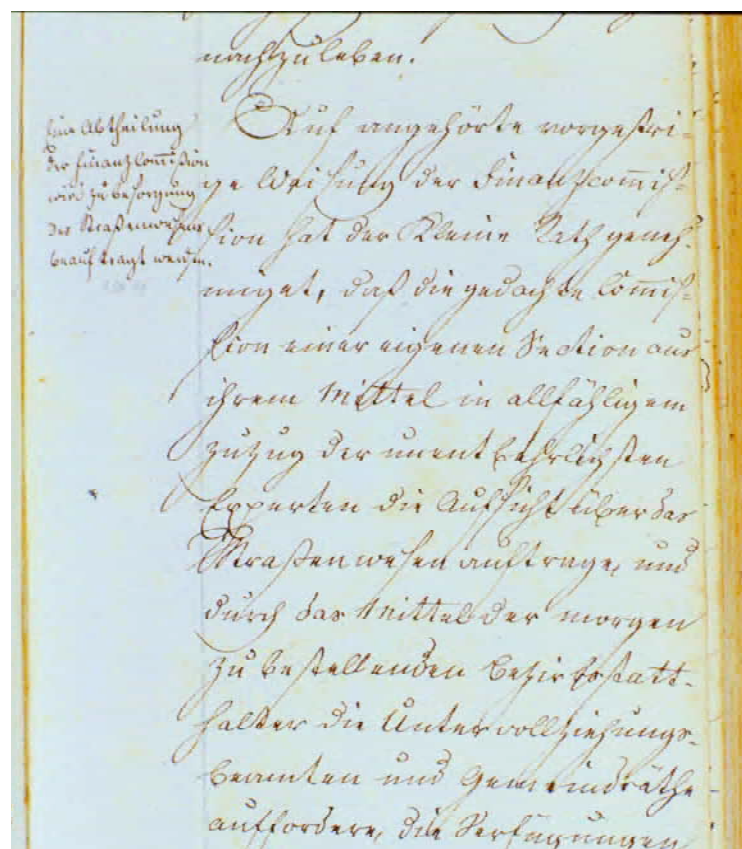 nachzuleben.
Eine Abtheilung
der Finanzcommißion
wird zu Besorgung
des Straßenwesens
beauftragt werden.
Auf angehörte vorgestri-
ge Weisung der Finanzcommiß-
sion hat der Kleine Rath geneh-
miget, daß die gedachte Commiß-
sion einer eigenen Section aus
ihrem Mittel in allfähligem
Zuzug der unentbehrlichsten
Experten die Aufsicht über das
Straßenwesen auftrage, und
durch das Mittel der morgen
zu bestellenden Bezirksstatt-
halter die Untervollziehungs-
beamten und Gemeindräthe
auffordere, die Verfügungen